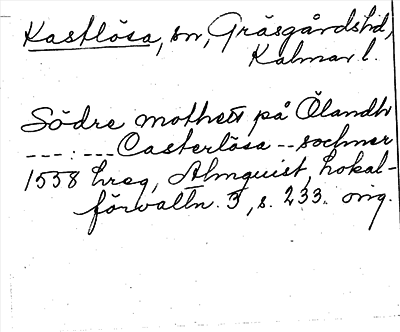 Kastlösa, sn, Gräsgårds hd,
Kalmar l.
Södre mothett på Ölandh
---:---Casterlösa -- sochner
1558 hreg, Almquist, Lokal-
förvaltn. 3, s. 233. orig.